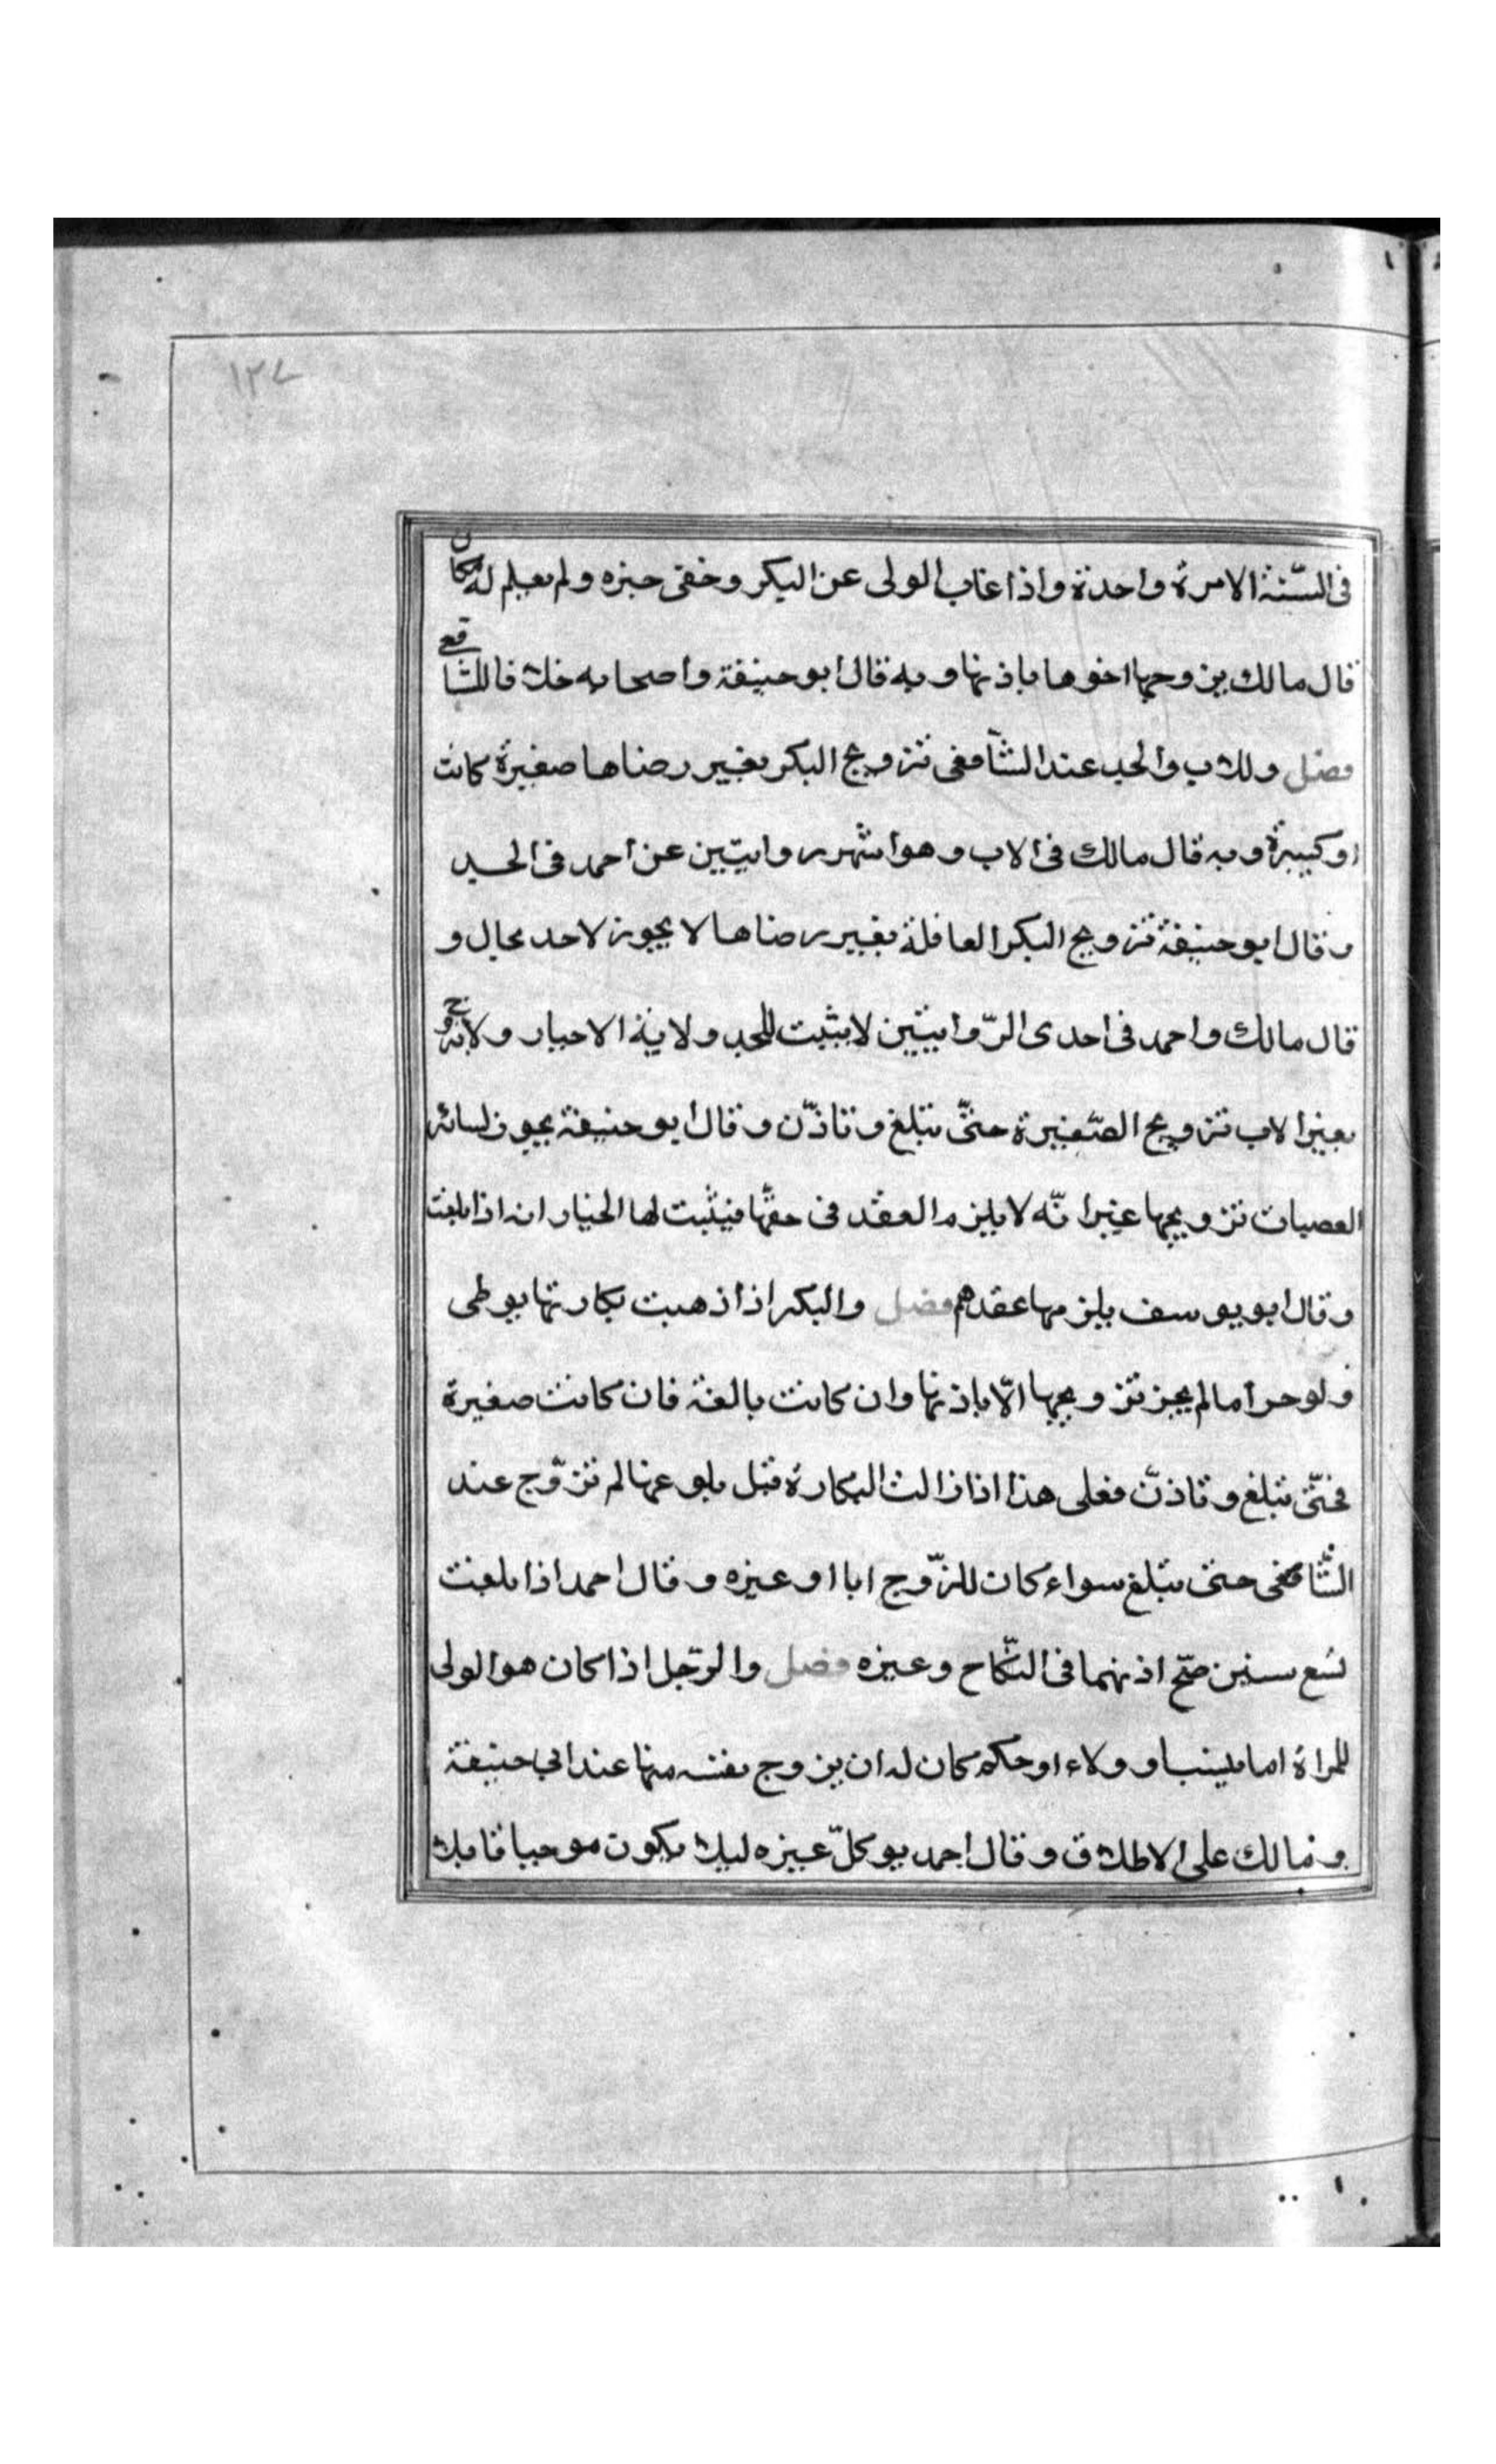 ١٢٧
فى السّنة الا مرة واحدة واذا غاب الولى عن البكر وخفى خبره ولم يعلم له مكان
قال مالك يزوجها اخوها باذنها وبه قال ابو حنيفة واصحابه خلافا للشافعى
فصل وللاب والجد عند الشافعى تزويج البكر بغير رضاها صغيرة كانت
او كبيرة وبه قال مالك فى الاب وهو اشهر روايتين عن احمد فى الجد
وقال ابو حنيفة تزويج البكر العاقلة بغير رضاها لا يجوز لاحد بحال و
قال مالك واحمد فى احدى الرّوايتين لا يثبت للجد ولاية الاجبار ولا يجوز
بغير الاب تزويج الصّغيرة حتّى تبلغ وتاذن وقال ابو حنيفة يجوز لسائر
العصبات تزويجها غير انّه لا يلزم العقد فى حقّها فيثبت لها الخيار ان اذا بلغت
وقال ابو يوسف يلزمها عقدهم فصل والبكر اذا ذهبت بكارتها بوطى
ولو حراما لم يجز تزويجها الّا باذنها وان كانت بالغة فان كانت صغيرة
فحتّى تبلغ وتاذن فعلى هذا اذا زالت البكارة قبل بلوغها لم تزوّج عند
الشّافعى حتى تبلغ سواء كان للزّوج ابا او غيره وقال احمد اذا بلغت
تسع سنين صحّ اذنهما فى النّكاح وغيره فصل والرّجل اذا كان هو الولى
للمراة اما بنسب او ولاء او حكم كان له ان يزوج نفسه منها عند ابى حنيفة
ومالك على الاطلاق وقال احمد يوكلّ غيره ليلا يكون موجبا قابلا